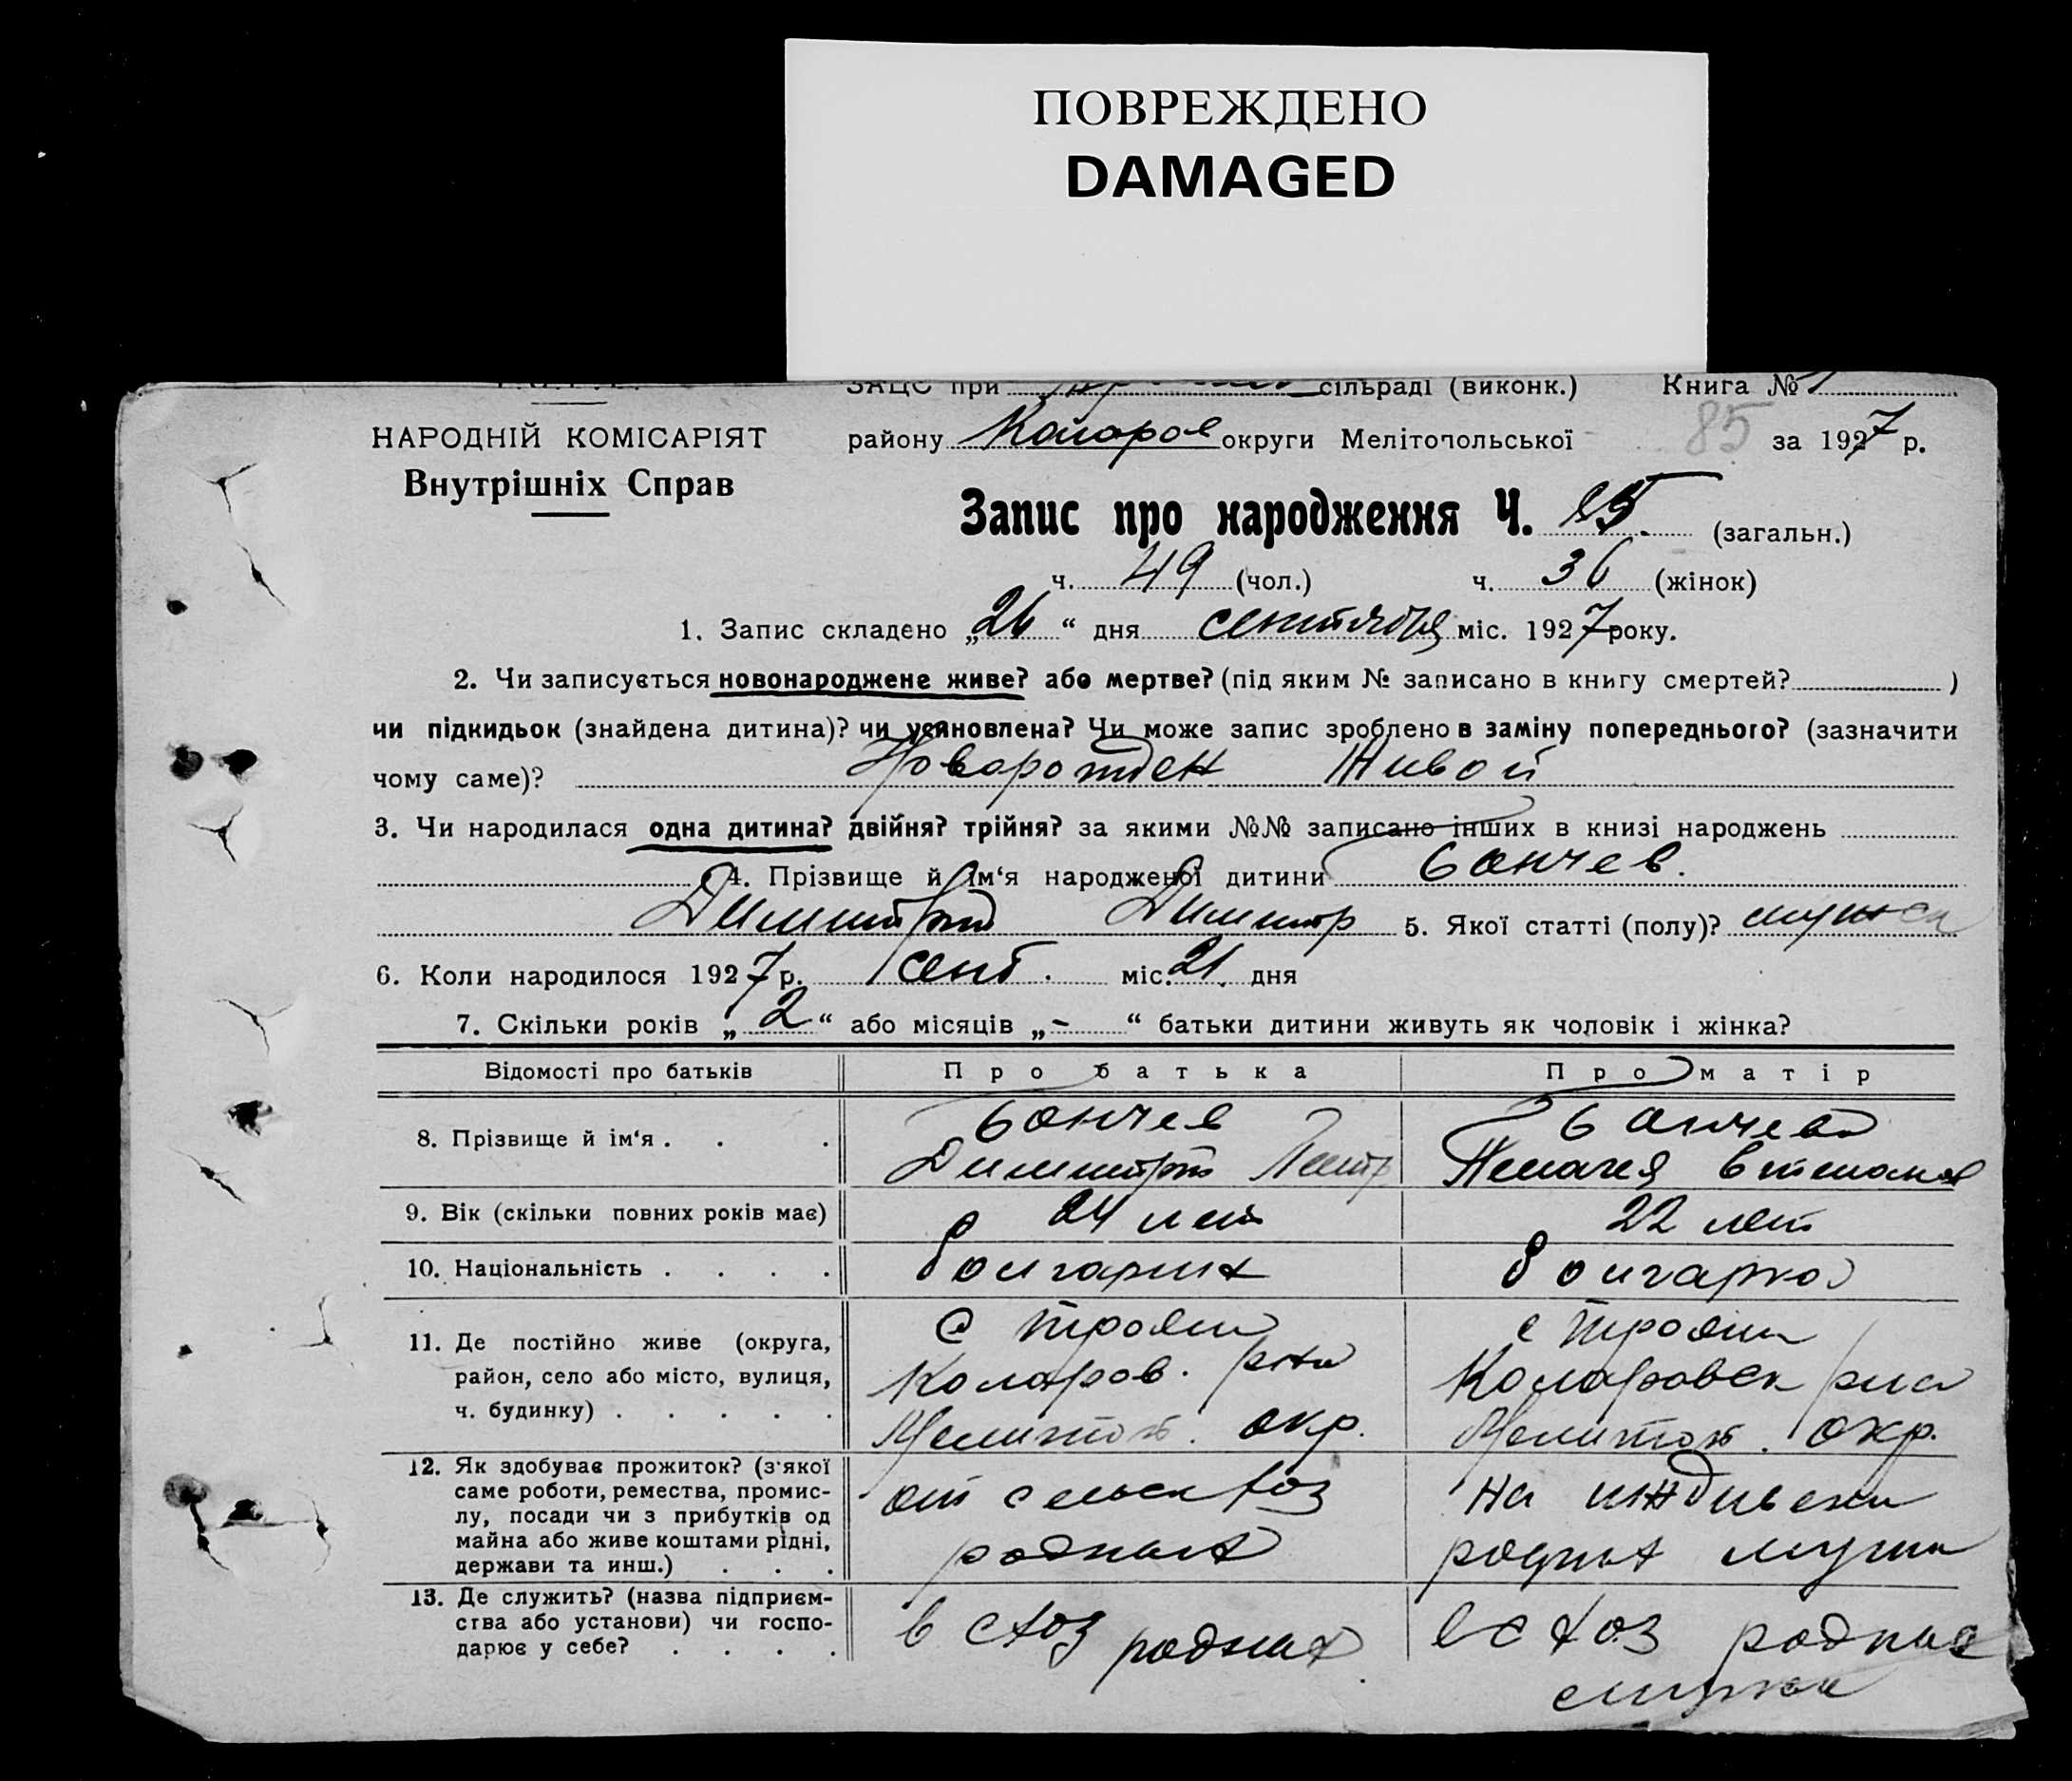 ПОВРЕЖДЕНО
DAMAGED
ЗАЦС при сільраді (виконк.) Книга №
НАРОДНІЙ КОМІСАРІЯТ
району Коларов округи Мелітопольської 85 за 1927 р.
Внутрішніх Справ
Запис про народження Ч. 85. (загальн.)
ч. 49 (чол.) ч. 36 (жінок)
1. Запис складено „26“ дня сентября міс. 1927 року.
2. Чи записується новонароджене живе? або мертве? (під яким № записано в книгу смертей? )
чи підкидьок (знайдена дитина)? чи усяновлена? Чи може запис зроблено в заміну попереднього? (зазначити
чому саме)? Поворожден Живой
3. Чи народилася одна дитина? двійня? трійня? за якими №№ записано інших в книзі народжень
4. Прізвище й ім‘я народженої дитини Бончев.
Димитрий Димитр 5. Якої статті (полу)? мужск
6. Коли народилося 1927 р. сент. міс. 21 дня
7. Скільки років „2“ або місяців „-“ батьки дитини живуть як чоловік і жінка?
Відомості про батьків Про батька Про матір
8. Прізвище й ім‘я . . . Бончев Бончева
Димитрий Петр Степанов
9. Вік (скільки повних років має) 24 лет 22 лет
10. Національність . . . . болгарин болгарка
11. Де постійно живе (округа, с Трояни с Трояни
район, село або місто, вулиця, Коларов. рна Коларовск рна
ч. будинку) . . . . . Мелитоп. окр. Мелитоп. окр.
12. Як здобуває прожиток? (з‘якої
саме роботи, ремества, промис- от сельск хоз на иждивени
лу, посади чи з прибутків од
майна або живе коштами рідні, родных родных мужа
держави та инш.) . . .
13. Де служить? (назва підприєм-
ства або установи) чи госпо- в схоз родных в с хоз родных
дарює у себе? . . . . мужа